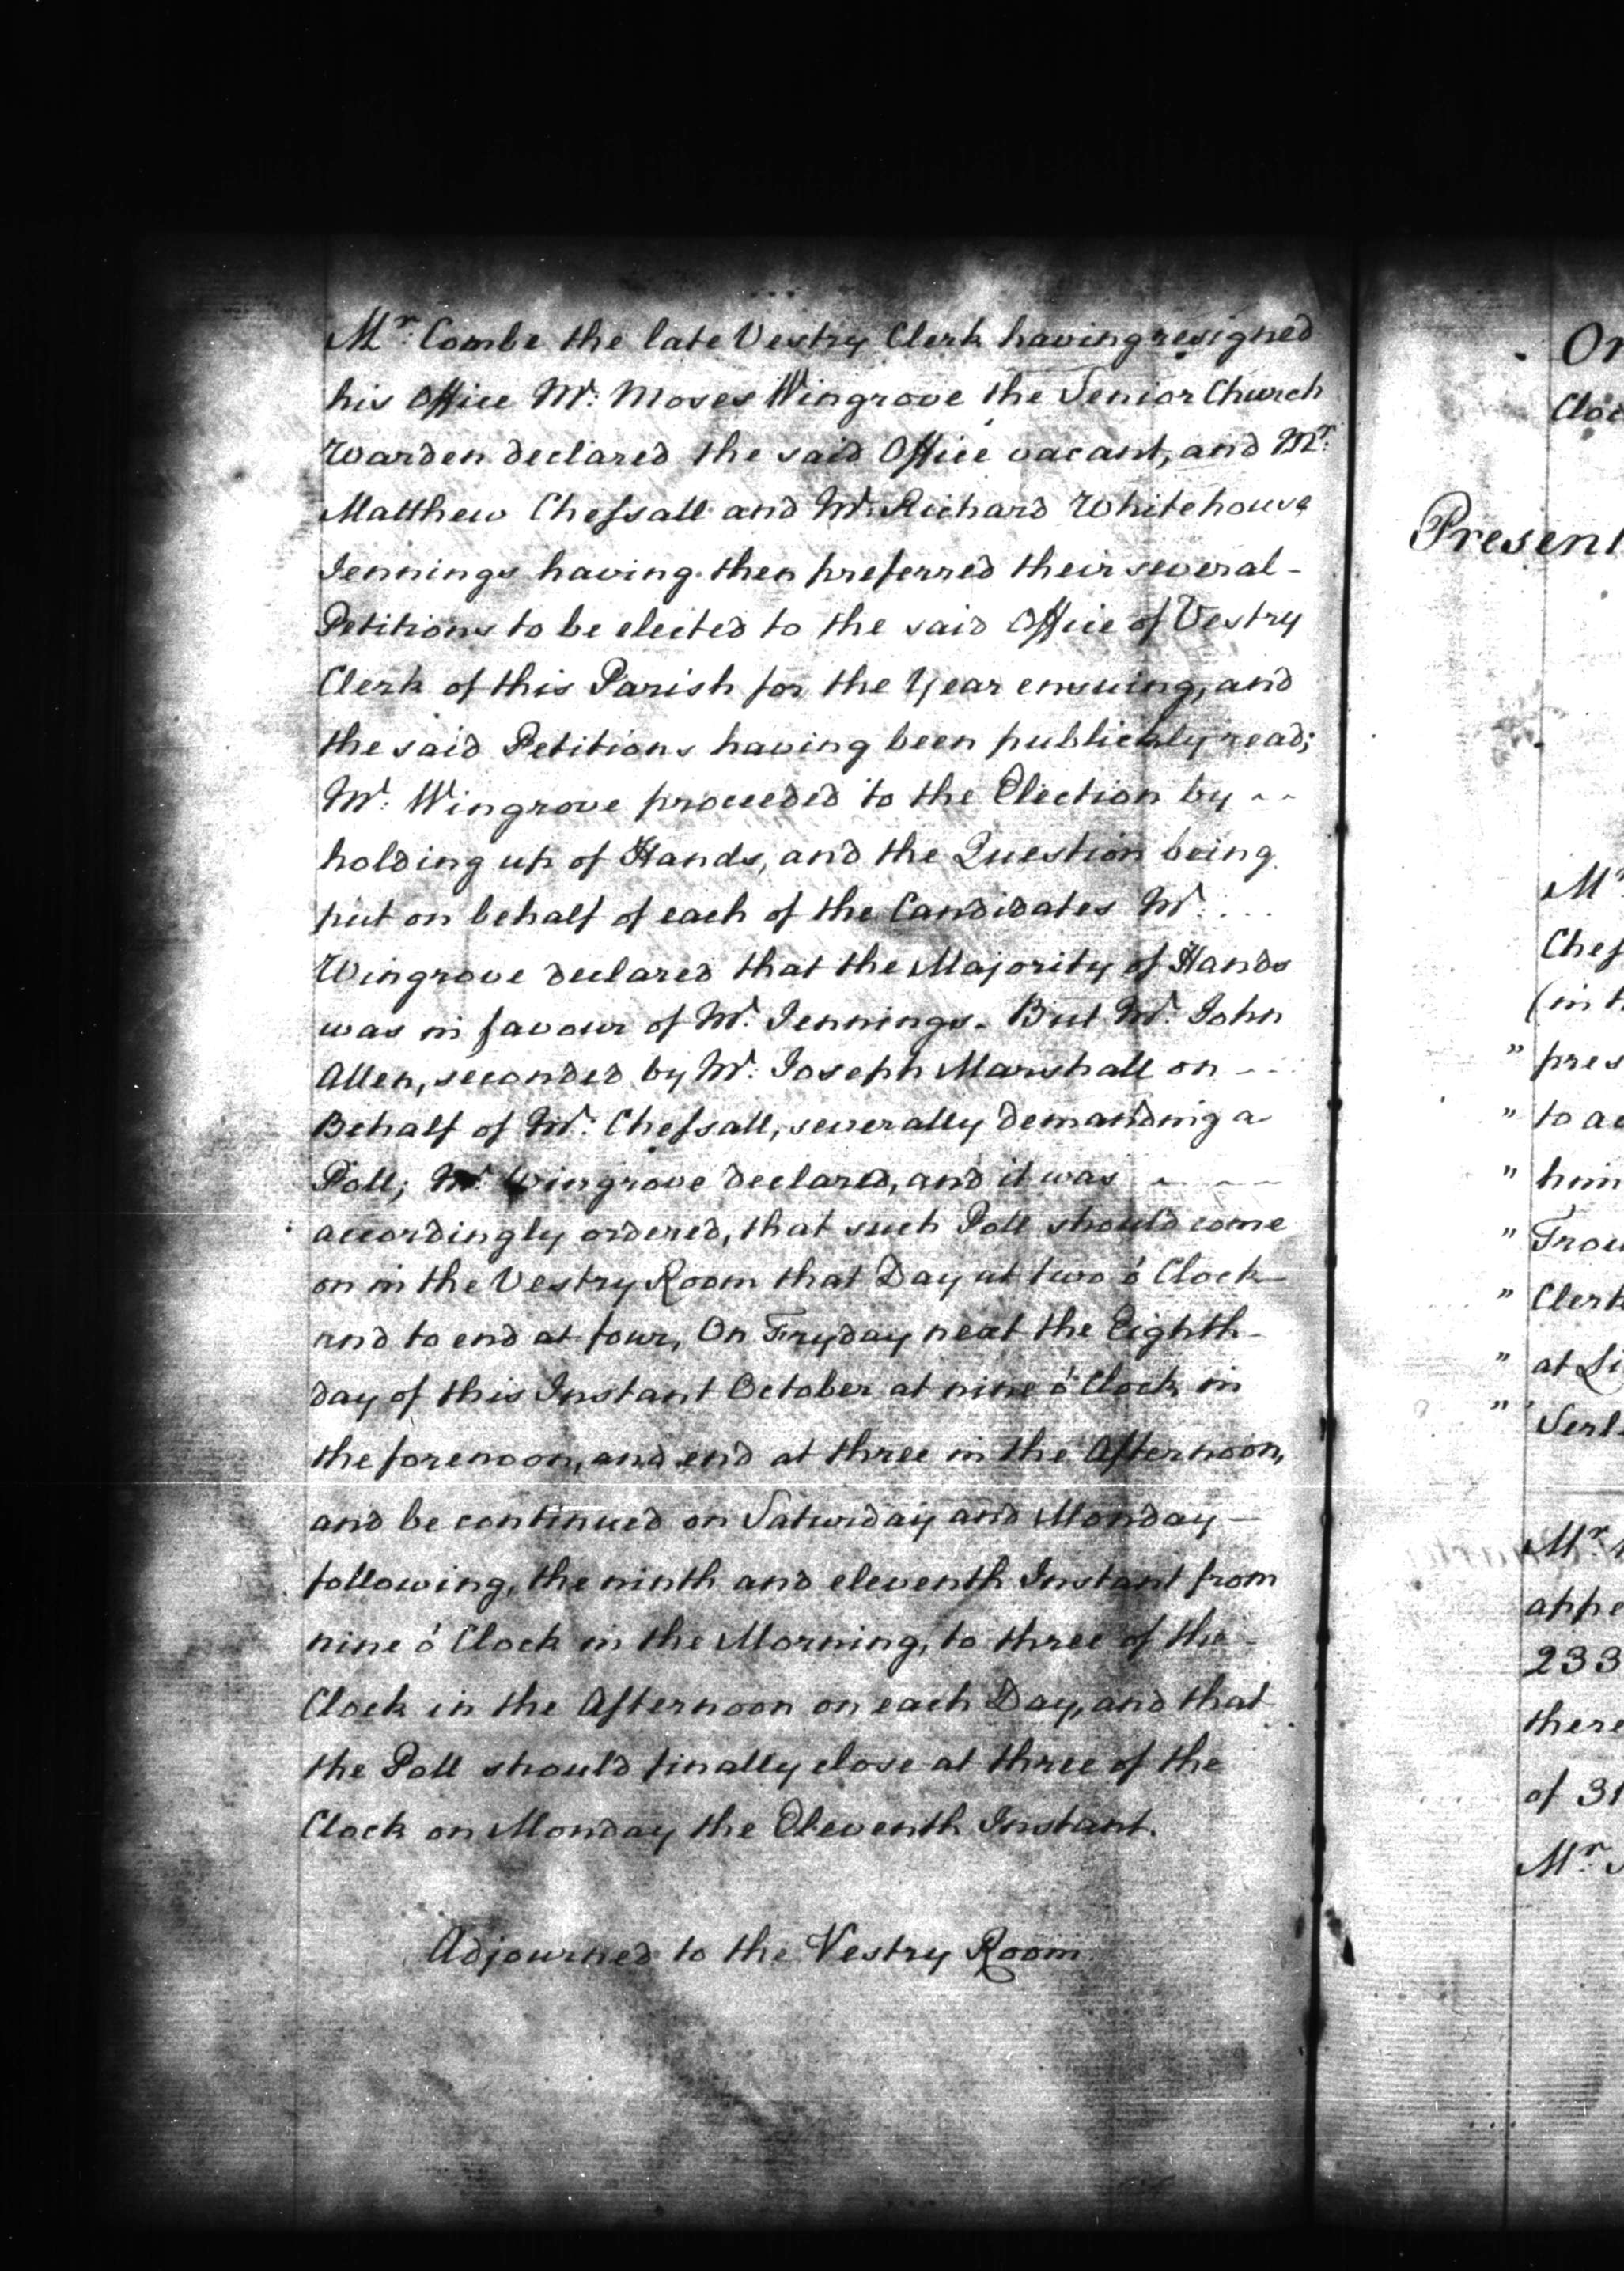 Mr. Combe the late Vestry Clerk having resigned
his Office Mr. Moses Wingrove the Senior Church
Warden declared the said Office vacant, and Mr.
Matthew Cheſsall and Mr. Richard Whitehouse
Jennings having then preferred their several -
Petitions to be elected to the said Office of Vestry
Clerk of this Parish for the Year ensuing, and
the said Petitions having been publickly read;
Mr. Wingrove proceeded to the Election by - -
holding up of Hands, and the Question being
put on behalf of each of the Candidates Mr. ...
Wingrove declared that the Majority of Hands
was in favour of Mr. Jennings. But Mr. John
Allen, seconded by Mr. Joseph Marshall on - -
Behalf of Mr. Cheſsall, severally demanding a
Poll; Mr. Wingrove declared, and it was - - -
accordingly ordered, that such Poll should come
on in the Vestry Room that Day at two o' Clock
and to end at four, On Fryday next the Eighth -
day of this Instant October at nine o' Clock in
the forenoon, and end at three in the Afternoon,
and be continued on Saturday and Monday -
following, the ninth and eleventh Instant from
nine o' Clock in the Morning, to three of the -
Clock in the Afternoon on each Day, and that
the Poll should finally close at three of the
Clock on Monday the Eleventh Instant.
Adjourned to the Vestry Room
Present
Mr
(in
" pres
" to
" him
"
" Clerk
" at
"
Mr.
appe
233
there
of 31
Mr